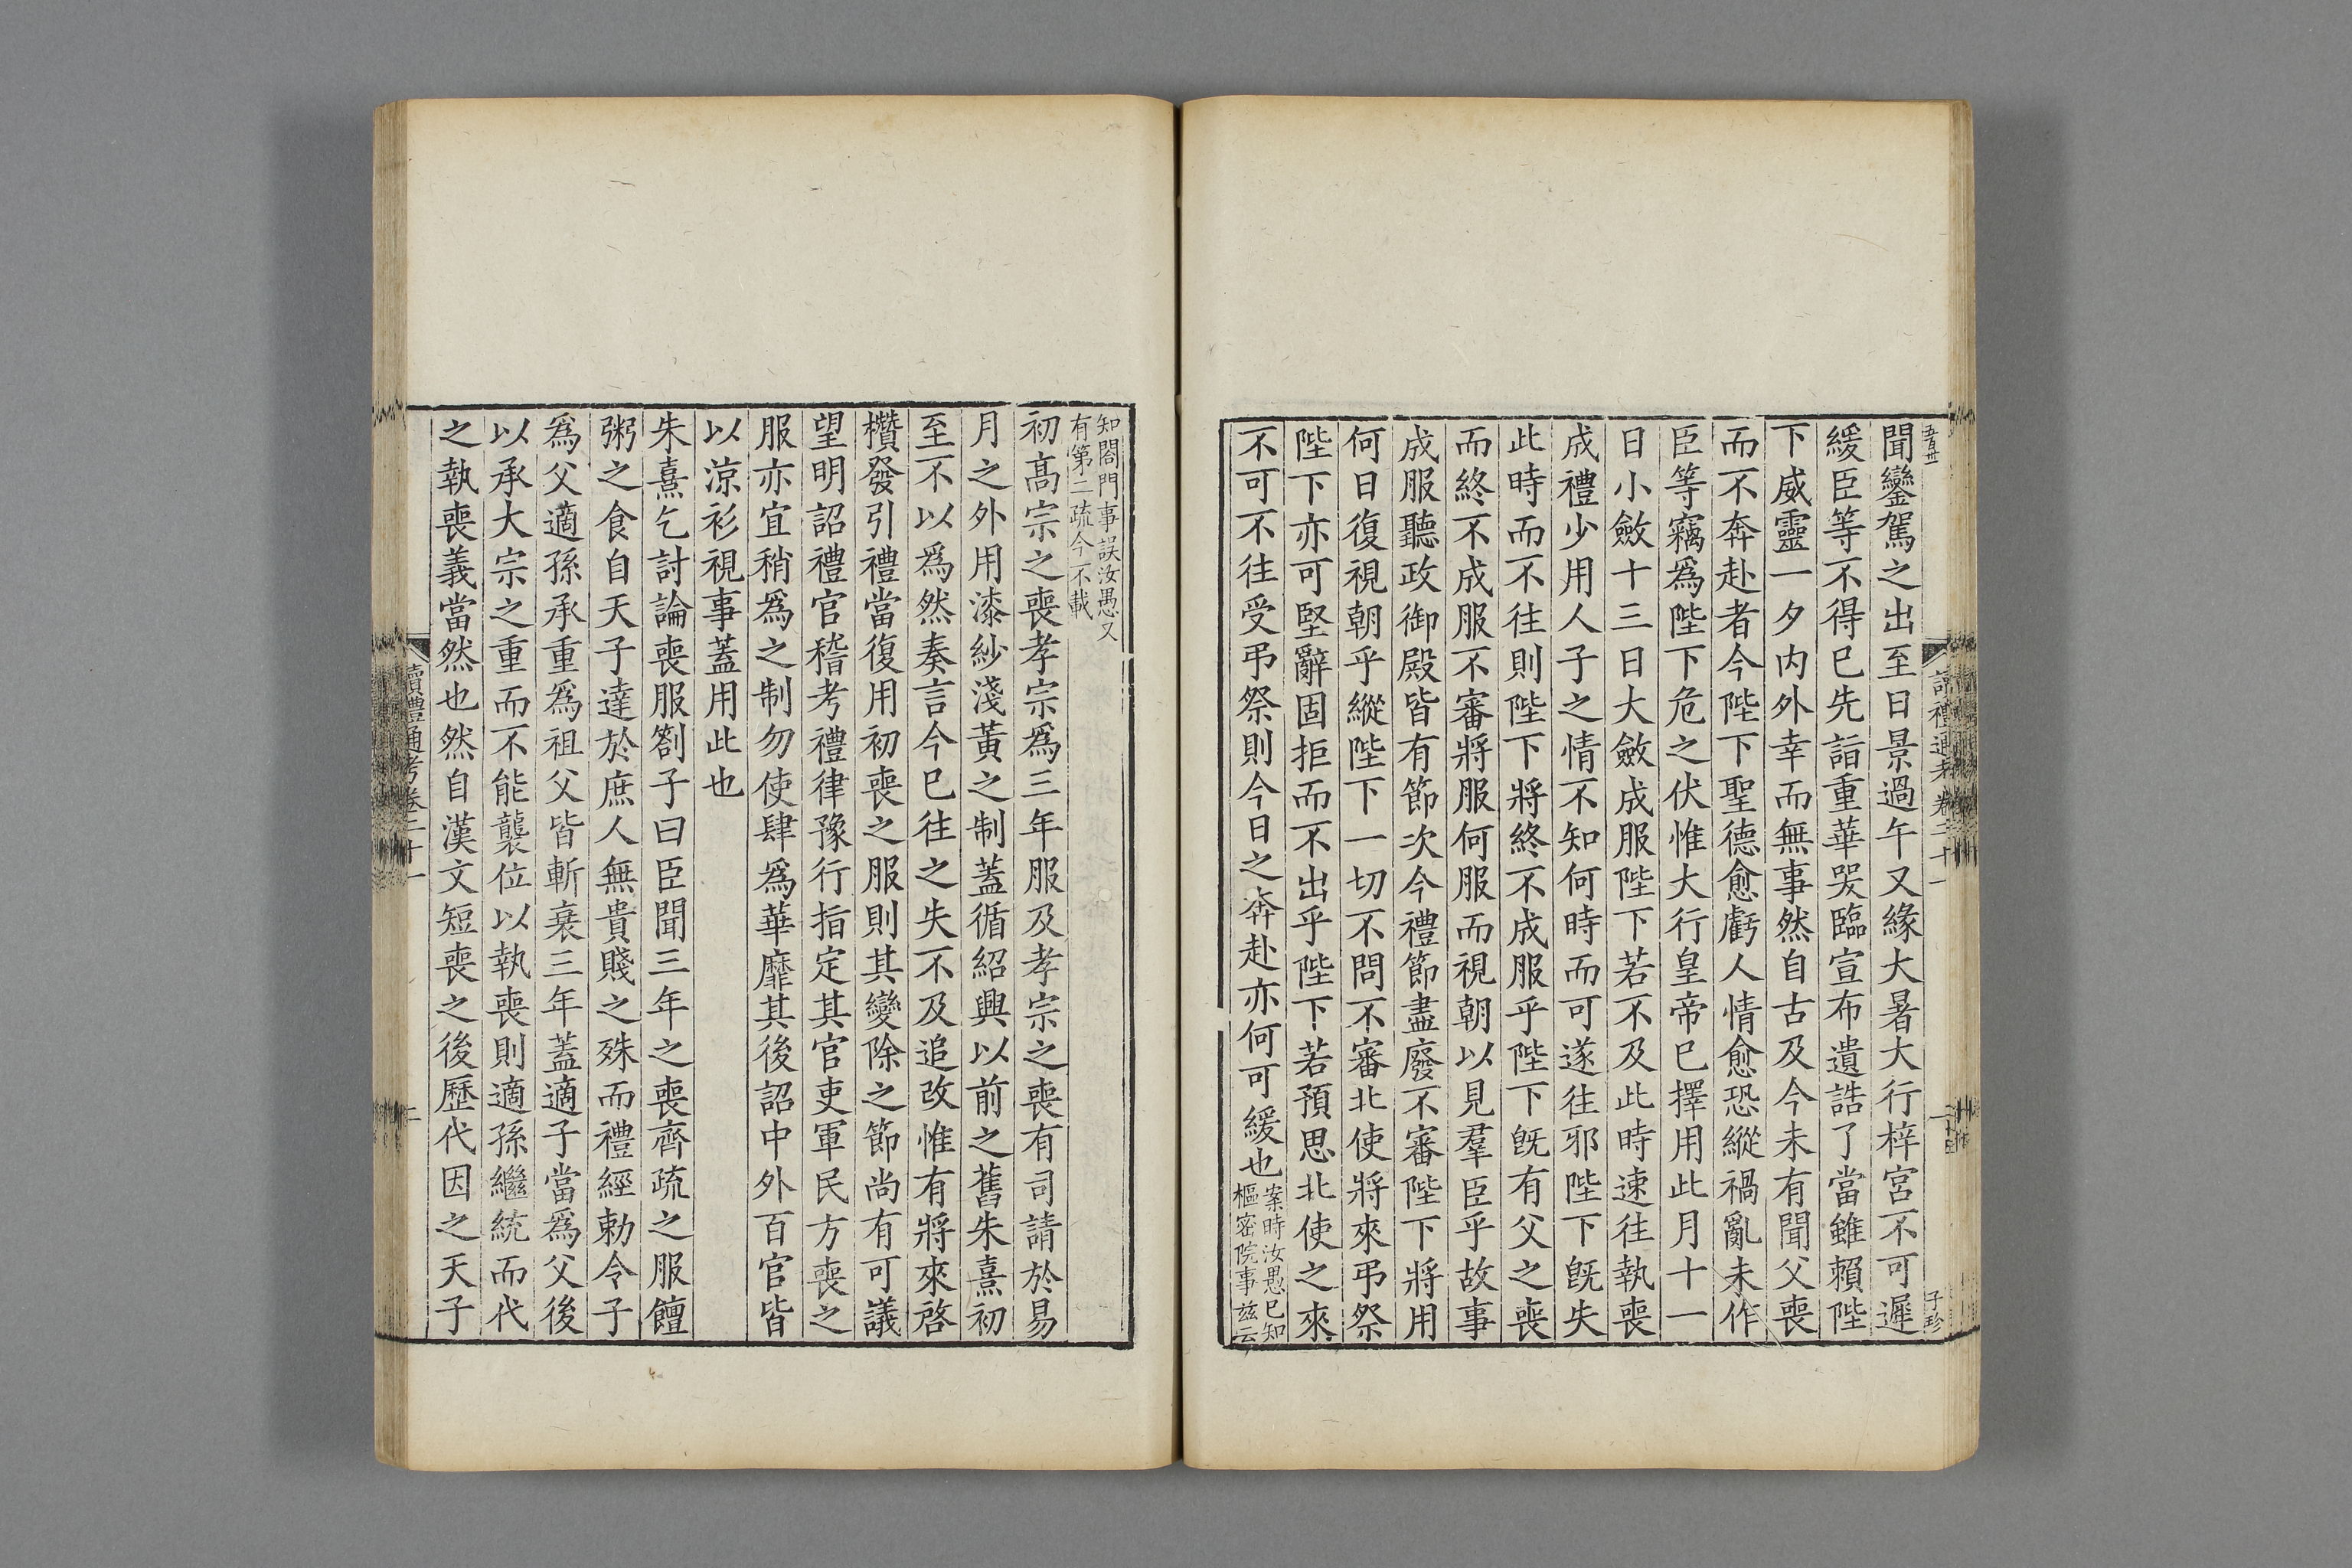 聞鑾駕之出至日景過午又緣大暑大行梓宮不可遲
緩臣等不得已先詣重華哭臨宣布遺誥了當雖賴陛
下威靈一夕内外幸而無事然自古及今未有聞父喪
而不奔赴者今陛下聖德愈虧人情愈恐縱禍亂未作
臣等竊爲陛下危之伏惟大行皇帝已擇用此月十一
日小斂十三日大斂成服陛下若不及此時速往執喪
成禮少用人子之情不知何時而可遂往邪陛下旣失
此時而不往則陛下將終不成服乎陛下旣有父之喪
而終不成服不審將服何服而視朝以見羣臣乎故事
成服聽政御殿皆有節次今禮節盡廢不審陛下將用
何日復視朝乎縱陛下一切不問不審北使將來弔祭
陛下亦可堅辭固拒而不出乎陛下若預思北使之來
不可不往受弔祭則今日之奔赴亦何可緩也
案時汝愚已知
樞密院事兹云
知閤門事誤汝愚又
有第二疏今不載
初高宗之喪孝宗爲三年服及孝宗之喪有司請於易
月之外用漆紗淺黃之制蓋循紹興以前之舊朱熹初
至不以爲然奏言今已往之失不及追改惟有將來啓
欑發引禮當復用初喪之服則其變除之節尚有可議
望明詔禮官稽考禮律豫行指定其官吏軍民方喪之
服亦宜稍爲之制勿使肆爲華靡其後詔中外百官皆
以涼衫視事蓋用此也
朱熹乞討論喪服劄子曰臣聞三年之喪齊疏之服饘
粥之食自天子達於庶人無貴賤之殊而禮經勅令子
爲父適孫承重爲祖父皆斬衰三年蓋適子當爲父後
以承大宗之重而不能襲位以執喪則適孫繼統而代
之執喪義當然也然自漢文短喪之後歷代因之天子
讀禮通考卷二十一